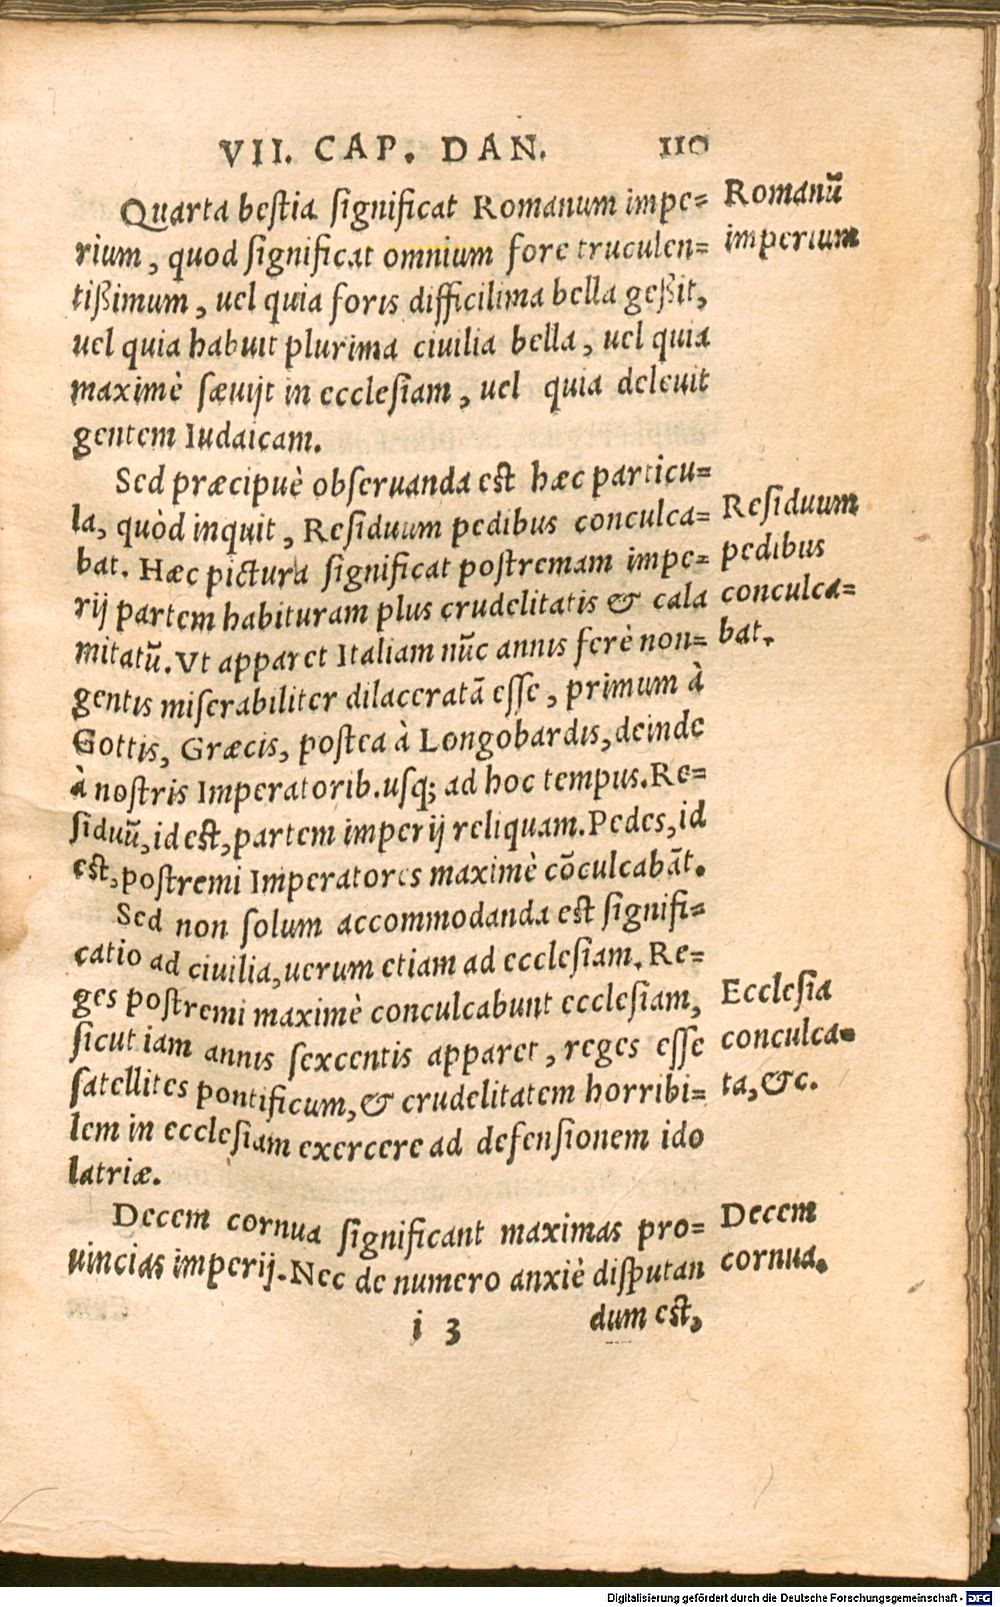 VII. CAP. DAN. 110
Quarta bestia significat Romanum impe=
rium, quod significat omnium fore truculen=
tißimum, uel quia foris difficilima bella geßit,
uel quia habuit plurima ciuilia bella, uel quia
maximè sæuijt in ecclesiam, uel quia deleuit
gentem Iudaicam.
Romanũ
imperium
Sed præcipuè obseruanda est hæc particu=
la, quòd inquit, Residuum pedibus conculca=
bat. Hæc pictura significat postremam impe=
rij partem habituram plus crudelitatis & cala
mitatũ. Vt apparet Italiam nũc annis ferè non=
gentis miserabiliter dilaceratã esse, primum à
Gottis, Græcis, postea à Longobardis, deinde
à nostris Imperatorib. usq; ad hoc tempus. Re=
siduũ, id est, partem imperij reliquam. Pedes, id
est, postremi Imperatores maximè cõculcabãt.
Residuum
pedibus
conculca=
bat.
Sed non solum accommodanda est signifi=
catio ad ciuilia, uerum etiam ad ecclesiam. Re=
ges postremi maximè conculcabunt ecclesiam,
sicut iam annis sexcentis apparet, reges esse
satellites pontificum, & crudelitatem horribi=
lem in ecclesiam exercere ad defensionem ido
latriæ.
Ecclesia
conculca=
ta, &c.
Decem cornua significant maximas pro=
uincias imperij. Nec de numero anxiè disputan
Decem
cornua.
i 3 dum est,
Digitalisierung gefördert durch die Deutsche Forschungsgemeinschaft - DFG